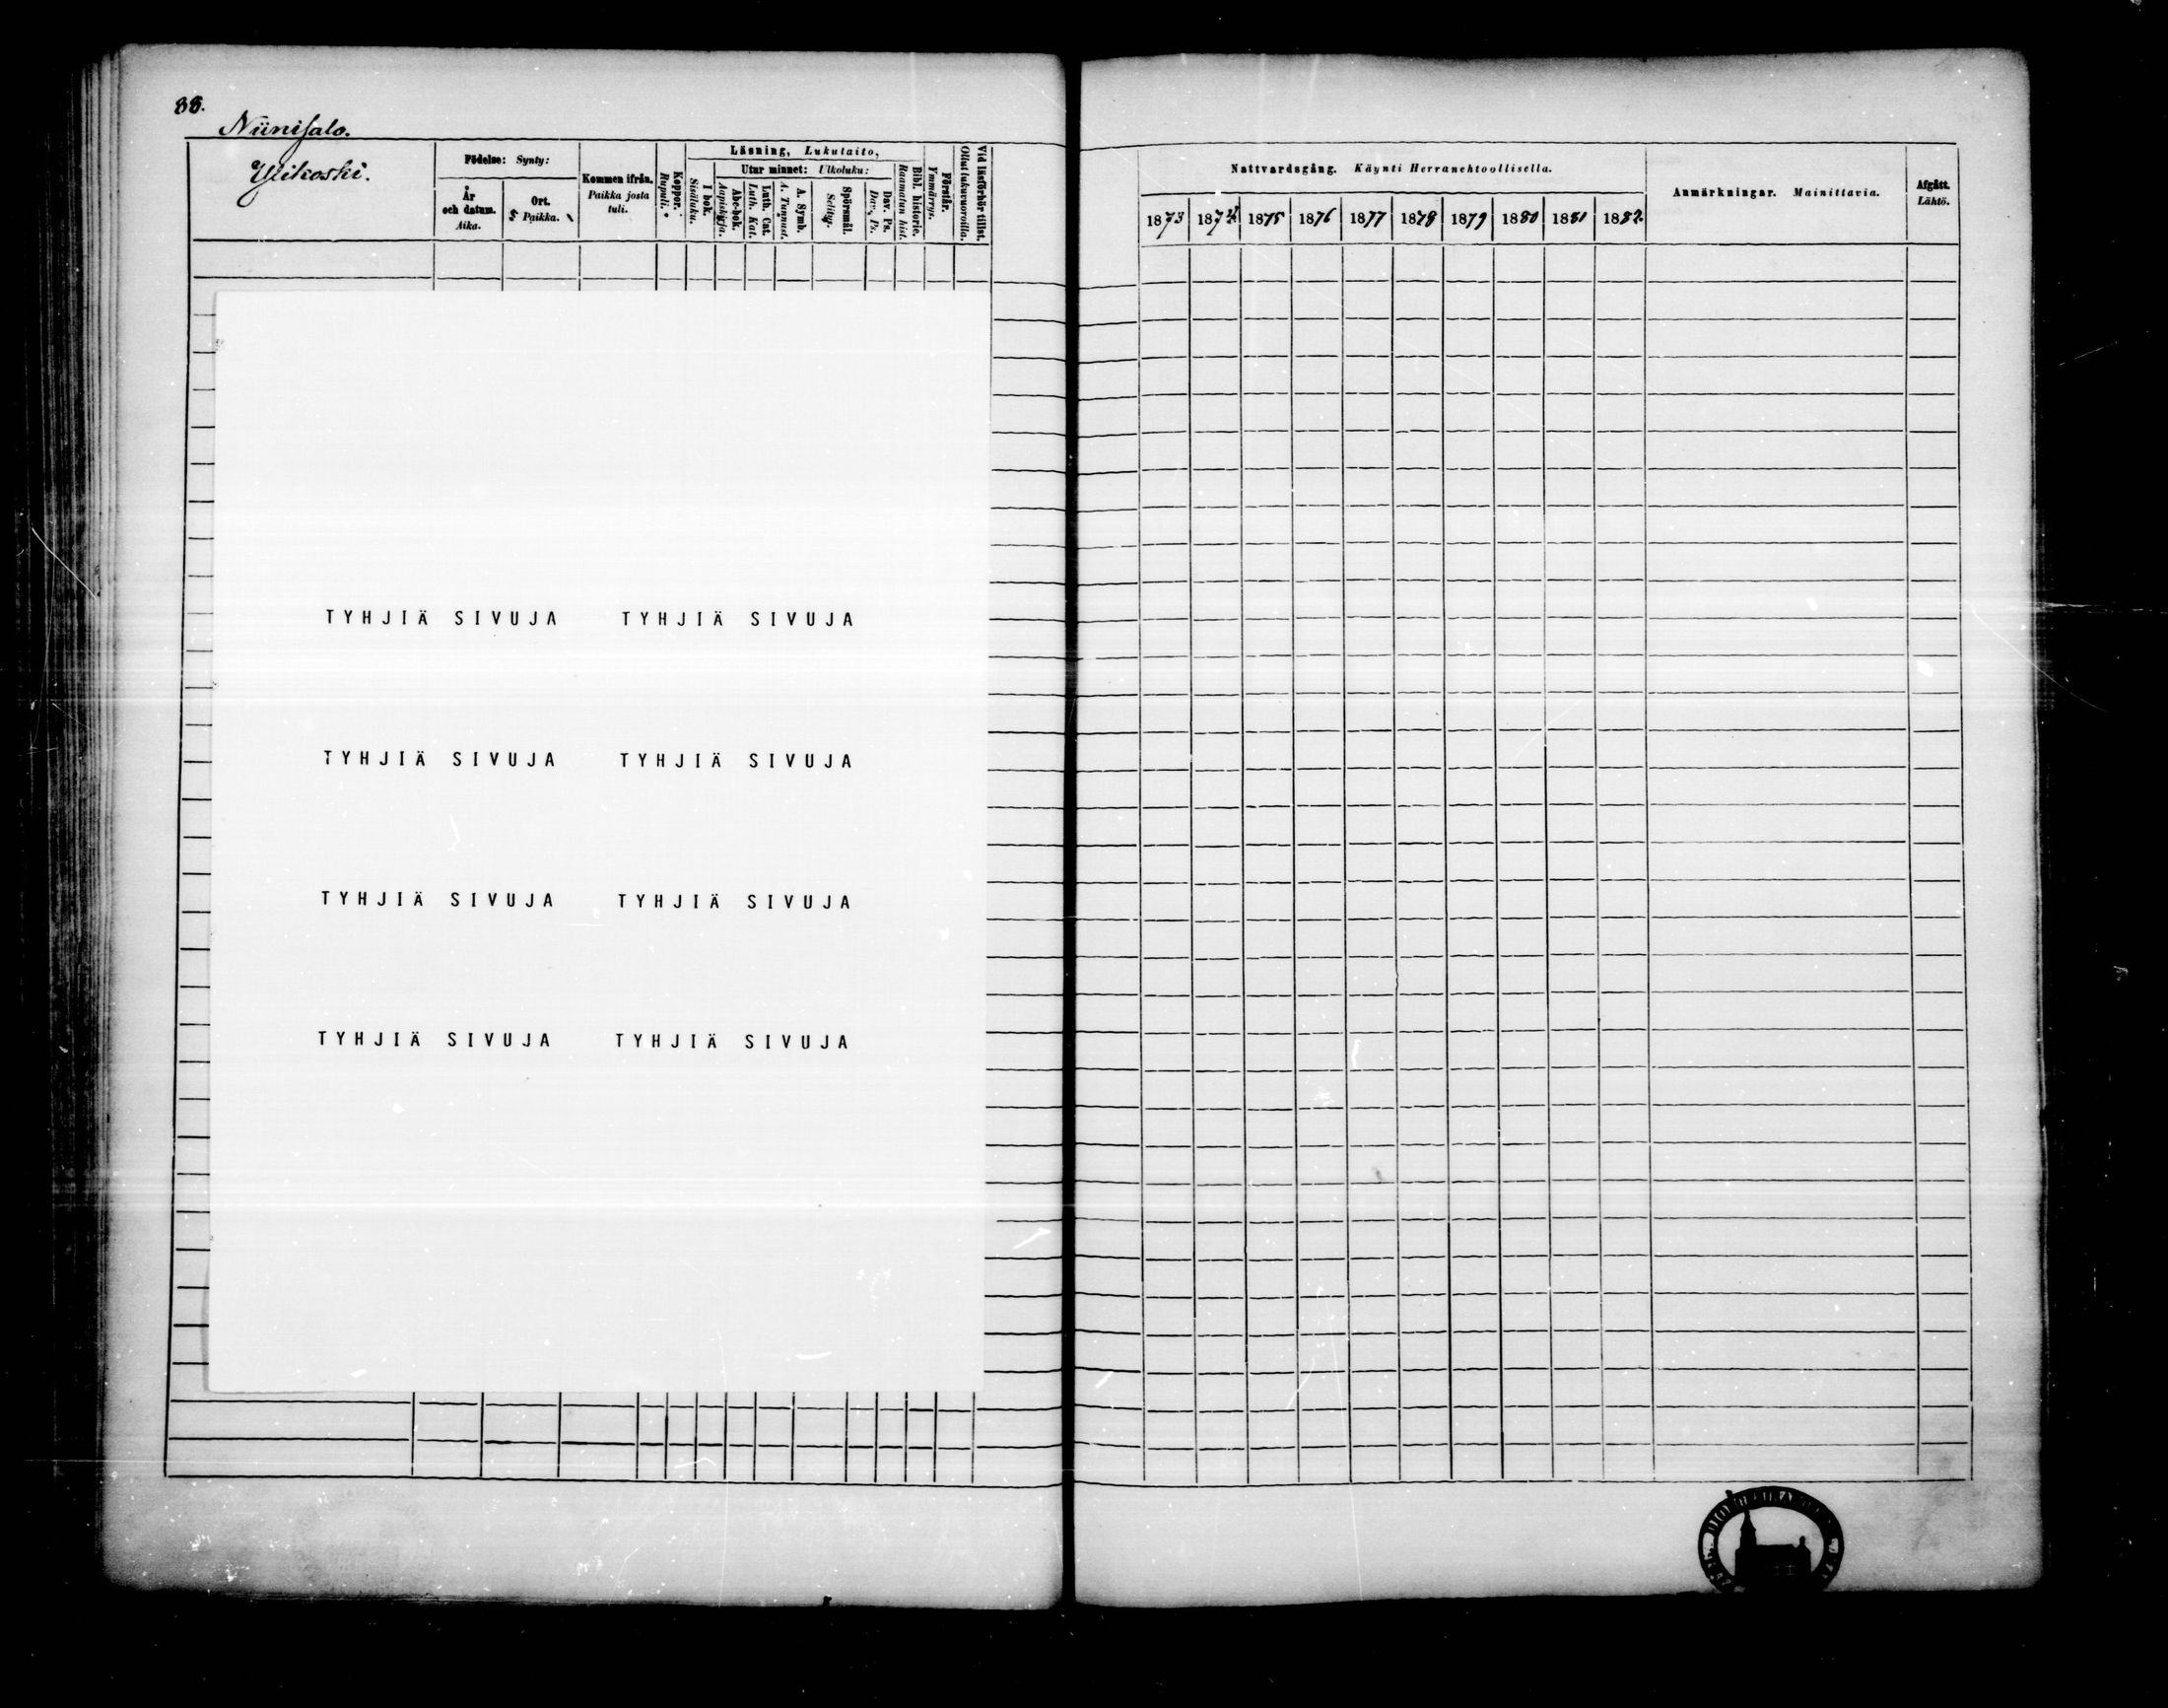 88.
Niinisalo.
Ylikoski.
Födelse: Synty:
År och datum. Aika.
Ort. Paikka.
Kommen ifrån. Paikka josta tuli.
Koppor. Rupuli.
Läsning, Lukutaito,
I bok. Sisäluku.
Utur minnet: Ulkoluku:
Abc-bok. Aapiskirja.
Luth. Cat. Luth. Kat.
A. Symb. A. Tunnust.
Spörsmål. Selitys.
Dav. Ps. Dav. Ps.
Bibl. historie. Raamatun hist.
Förstår. Ymmärrys.
Vid läsförhör tillst. Ollut lukuvuoroilla.
Nattvardsgång. Käynti Herranehtoollisella.
1873 1874 1875 1876 1877 1878 1879 1880 1881 1882
Anmärkningar. Mainittavia.
Afgått. Lähtö.
TYHJIÄ SIVUJA TYHJIÄ SIVUJA
TYHJIÄ SIVUJA TYHJIÄ SIVUJA
TYHJIÄ SIVUJA TYHJIÄ SIVUJA
TYHJIÄ SIVUJA TYHJIÄ SIVUJA